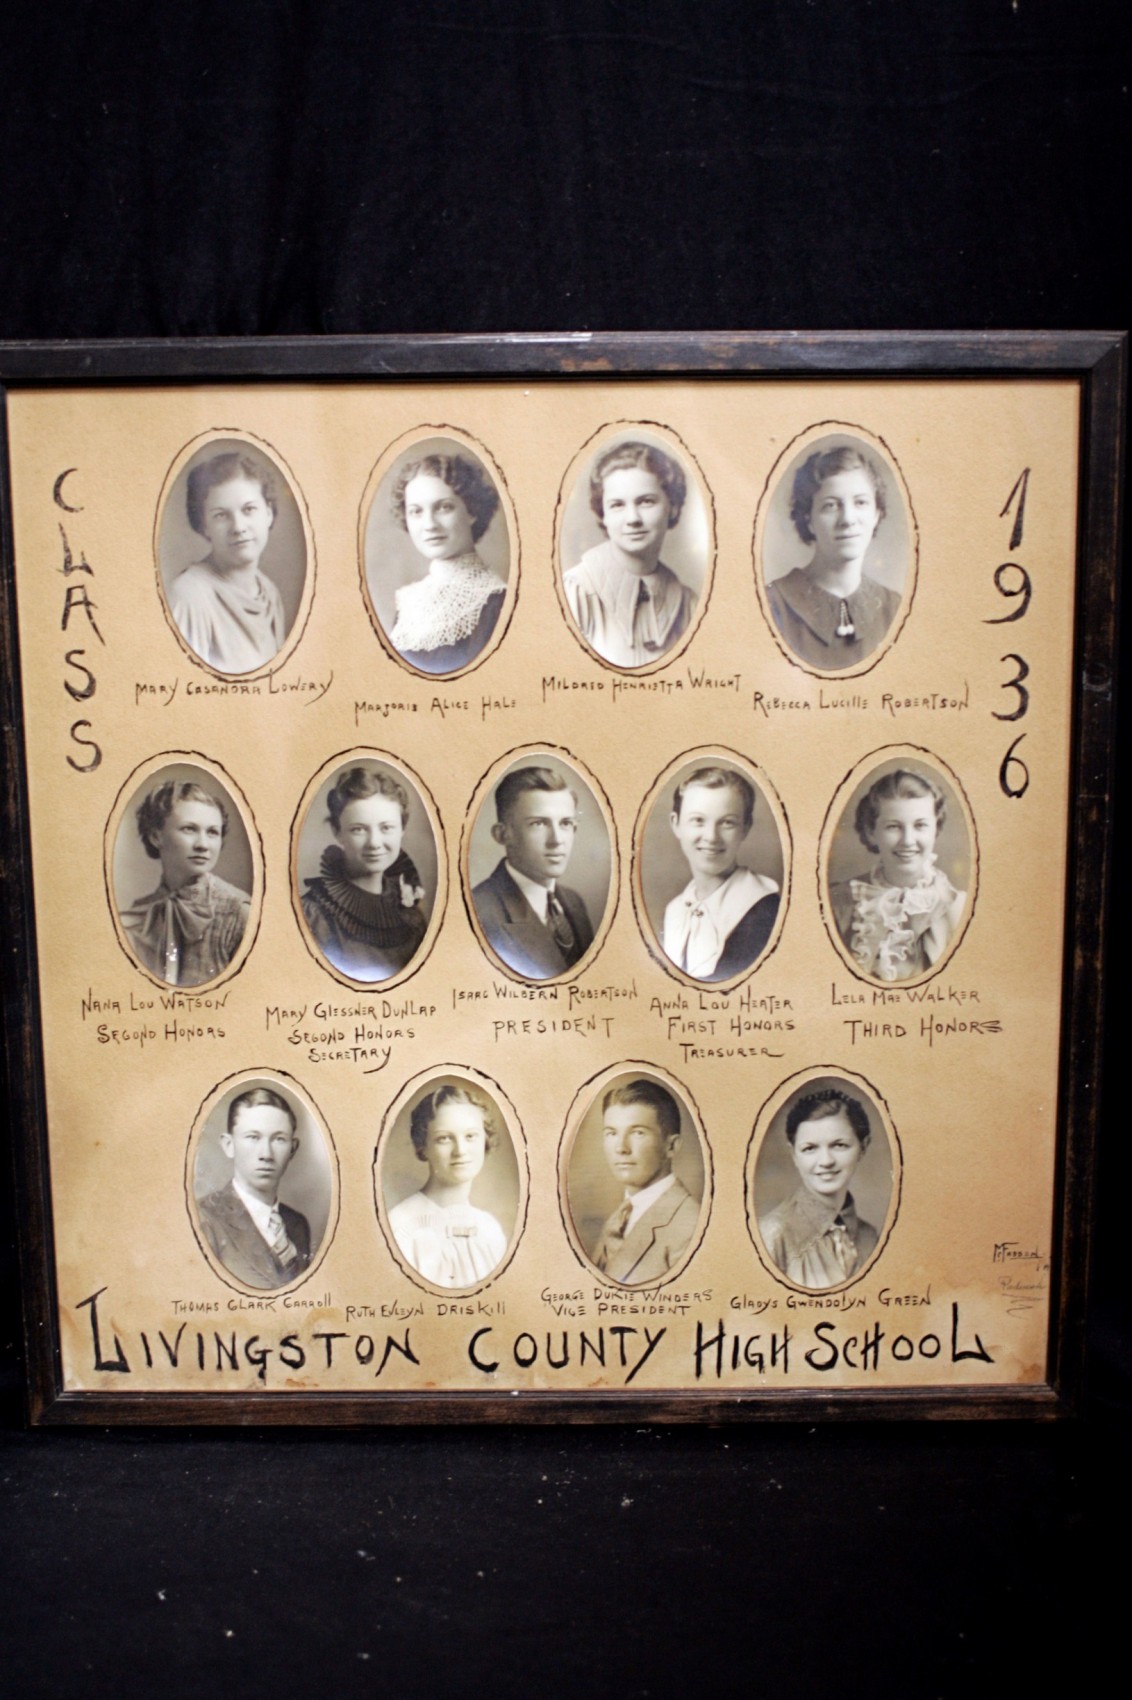 CLASS
1936
MARY CASANDRA LOWERY
MARJORIE ALICE HALE
MILDRED HENRIETTA WRIGHT
REBECCA LUCILLE ROBERTSON
NANA LOU WATSON
SECOND HONORS
MARY GLESSNER DUNLAP
SECOND HONORS
SECRETARY
ISAAC WILBERN ROBERTSON
PRESIDENT
ANNA LOU HEATER
FIRST HONORS
TREASURER
LELA MAE WALKER
THIRD HONORS
THOMAS CLARK CARROLL
RUTH EVLEYN DRISKILL
GEORGE DUKIE WINDERS
VICE PRESIDENT
GLADYS GWENDOLYN GREEN
McFADDEN
LIVINGSTON COUNTY HIGH SCHOOL